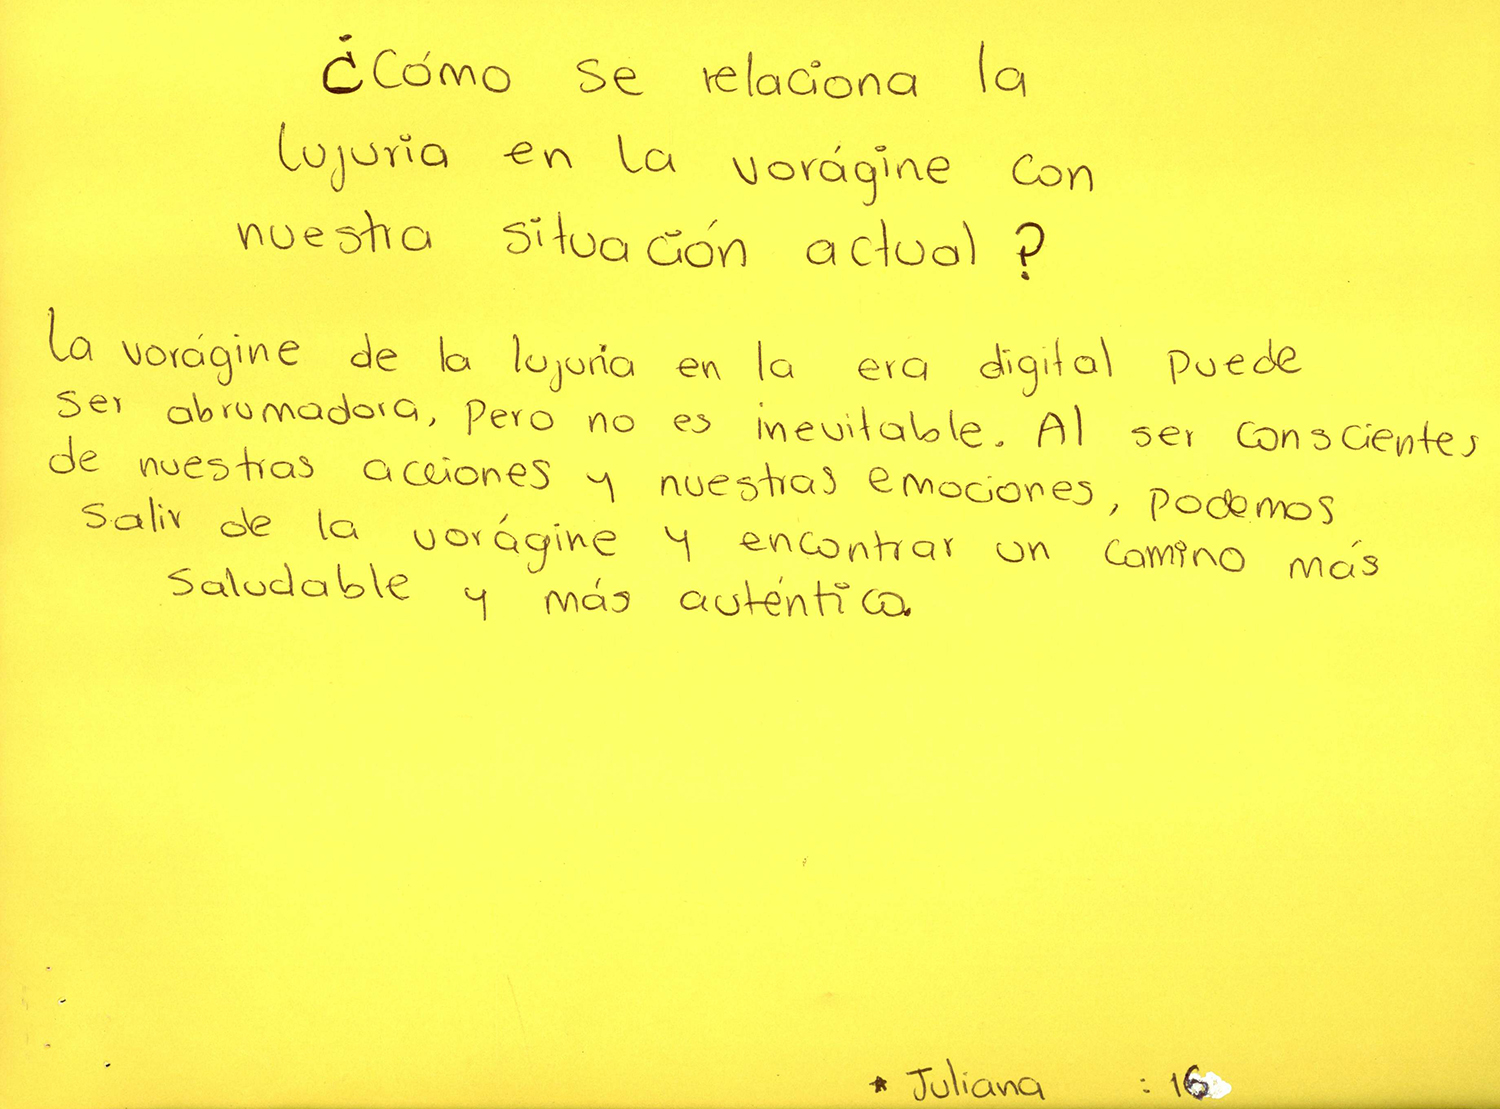 ¿Cómo se relaciona la
lujuria en la vorágine con
nuestra situación actual?
La vorágine de la lujuria en la era digital puede
ser abrumadora, pero no es inevitable. Al ser conscientes
de nuestras acciones y nuestras emociones, podemos
salir de la vorágine y encontrar un camino más
saludable y más auténtico.
* Juliana : 16